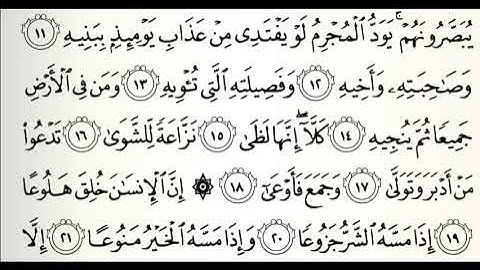 يُبَصَّرُونَهُمْ ۚ يَوَدُّ ٱلْمُجْرِمُ لَوْ يَفْتَدِى مِنْ عَذَابِ يَوْمِئِذٍۭ بِبَنِيهِ ١١
وَصَـٰحِبَتِهِۦ وَأَخِيهِ ١٢ وَفَصِيلَتِهِ ٱلَّتِى تُـْٔوِيهِ ١٣ وَمَن فِى ٱلْأَرْضِ
جَمِيعًا ثُمَّ يُنجِيهِ ١٤ كَلَّآ ۖ إِنَّهَا لَظَىٰ ١٥ نَزَّاعَةً لِّلشَّوَىٰ ١٦ تَدْعُوا۟
مَنْ أَدْبَرَ وَتَوَلَّىٰ ١٧ وَجَمَعَ فَأَوْعَىٰٓ ١٨ ۞ إِنَّ ٱلْإِنسَـٰنَ خُلِقَ هَلُوعًا
١٩ إِذَا مَسَّهُ ٱلشَّرُّ جَزُوعًا ٢٠ وَإِذَا مَسَّهُ ٱلْخَيْرُ مَنُوعًا ٢١ إِلَّا